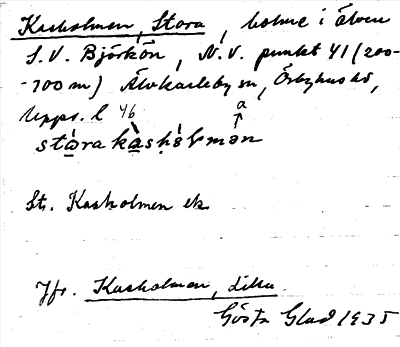 Kasholmen, Stora, holme i älven
S.V. Björkön, N.V. punkt 41 (200-
-700 m) Älvkarleby sn, Örbyhus hd,
Upps. l
46
a
stòra kàshòlmən
St. Kasholmen ek
Jfr. Kasholmen, Lilla.
Gösta Glad 1935